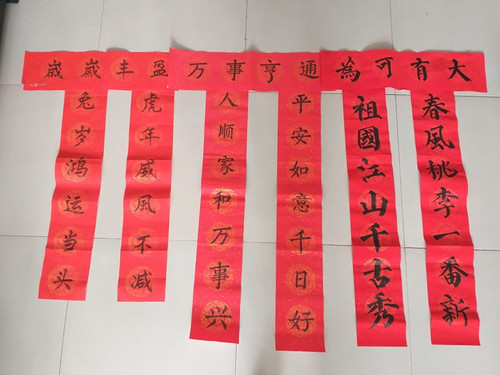 嵗嵗丰盈
兔岁鸿运当头
虎年威風不减
万事亨通
人顺家和万事兴
平安如意千日好
大有可為
春風桃李一番新
祖國江山千古秀